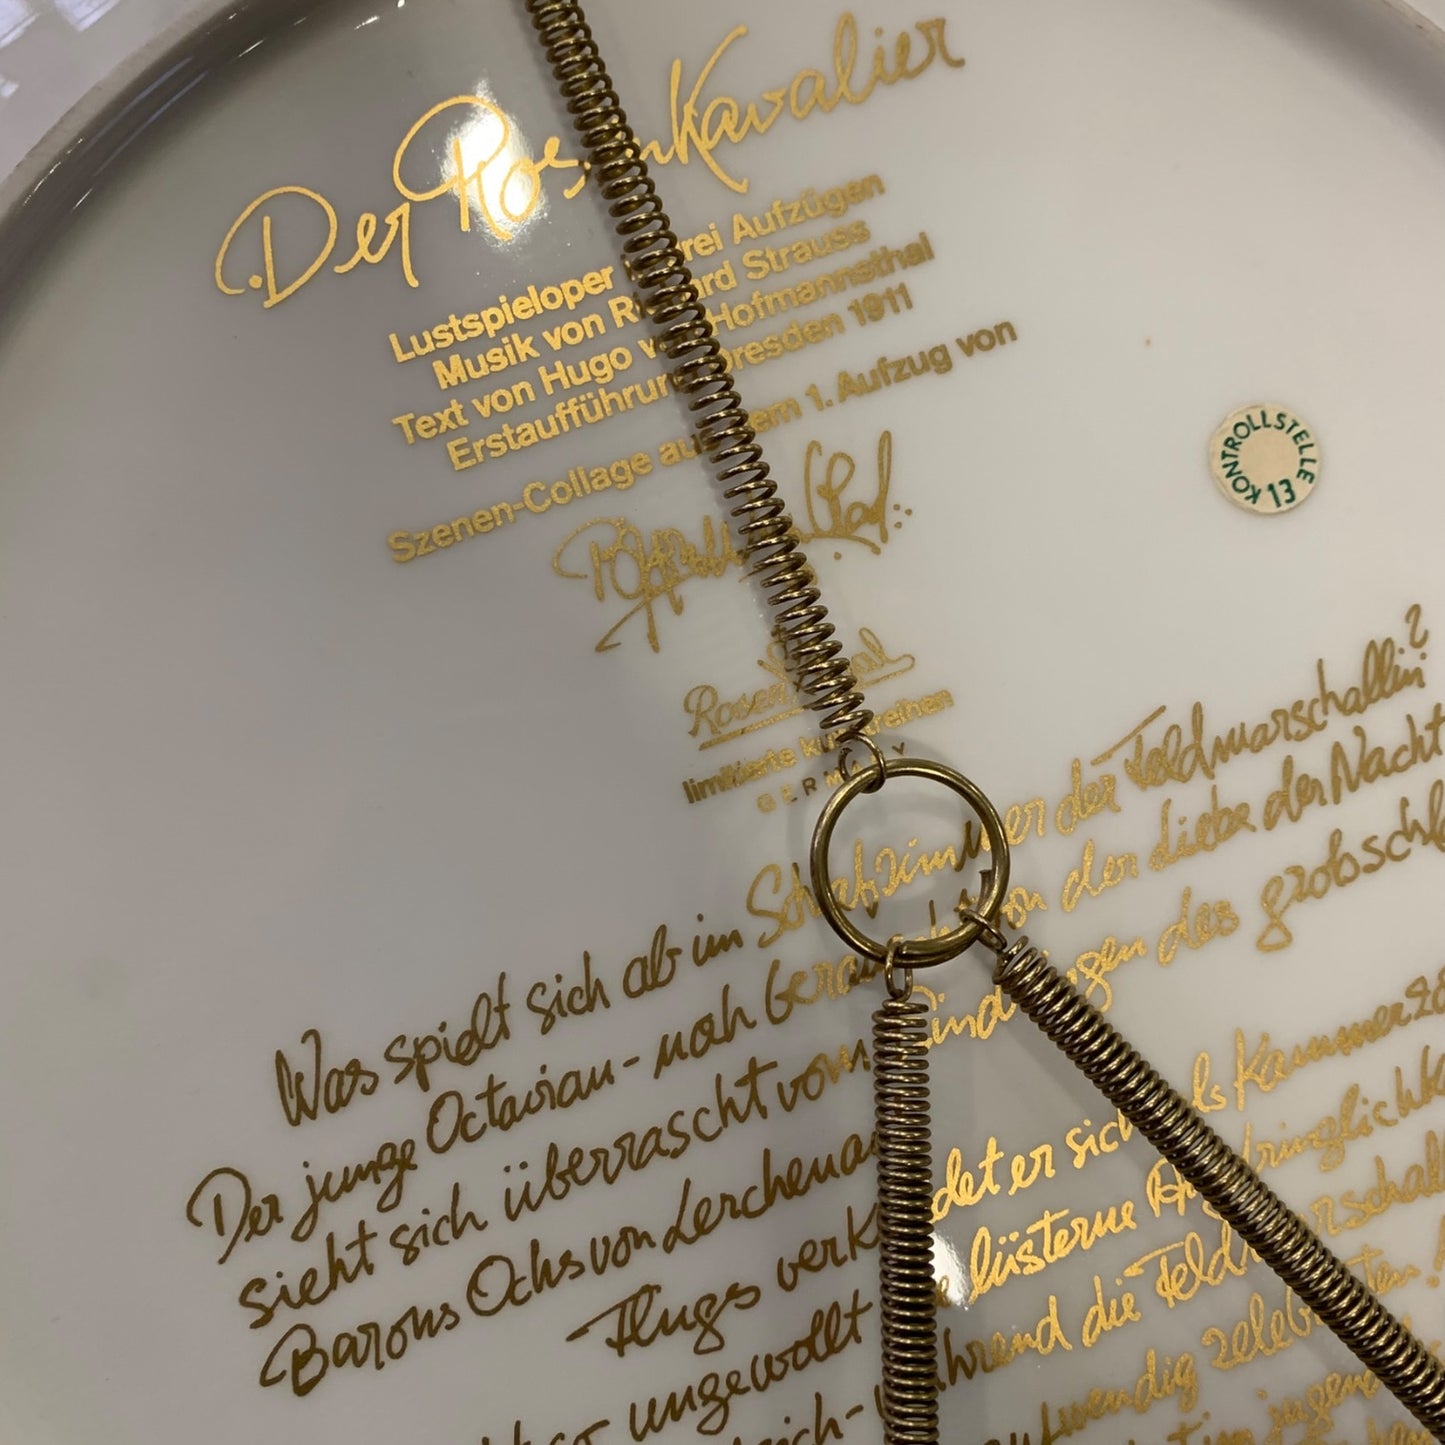 Der Rosenkavalier
Lustspieloper drei Aufzügen
Musik von Richard Strauss
Text von Hugo von Hofmannsthal
Erstaufführung Dresden 1911
Szenen-Collage aus dem 1. Aufzug von
KONTROLLSTELLE 13
Rosenthal
limitierte kunstreihen
GERMANY
Was spielt sich ab im Schlafzimmer der Feldmarschallin?
Der junge Octavian - noch berauscht von der Liebe der Nacht
sieht sich überrascht vom Eindringen des grobschl
Barons Ochs von Lerchenau
Flugs verkleidet er sich als Kammerzo
ungewollt die lüsterne Aufdringlichk
sich - während die Feldmarschall
aufwendig zeleb
jugen